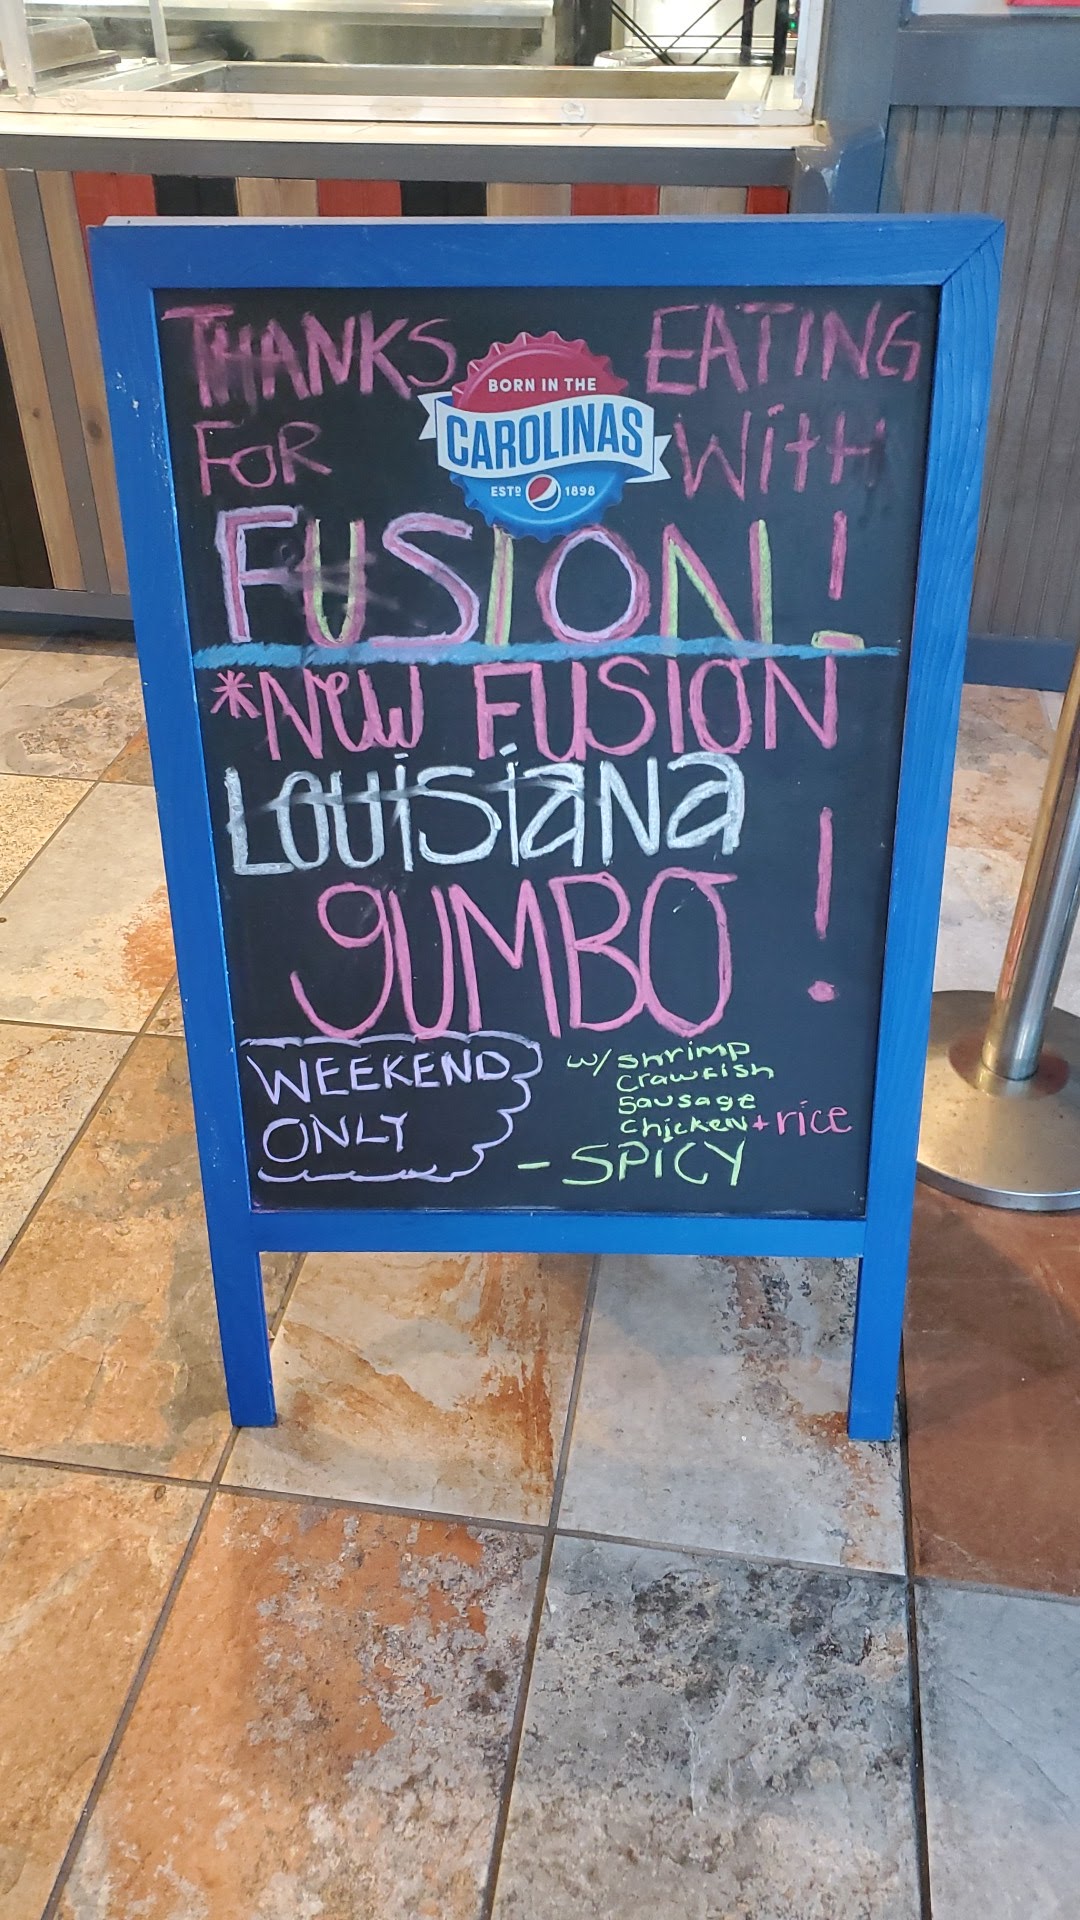 THANKS EATING
FOR WitH
BORN IN THE
CAROLINAS
ESTD 1898
FUSION!
*New FUSION
LOUiSiaNa
gUMBO!
WEEKEND
ONLY
w/ shrimp
crawfish
sausage
chicken + rice
- SPICY